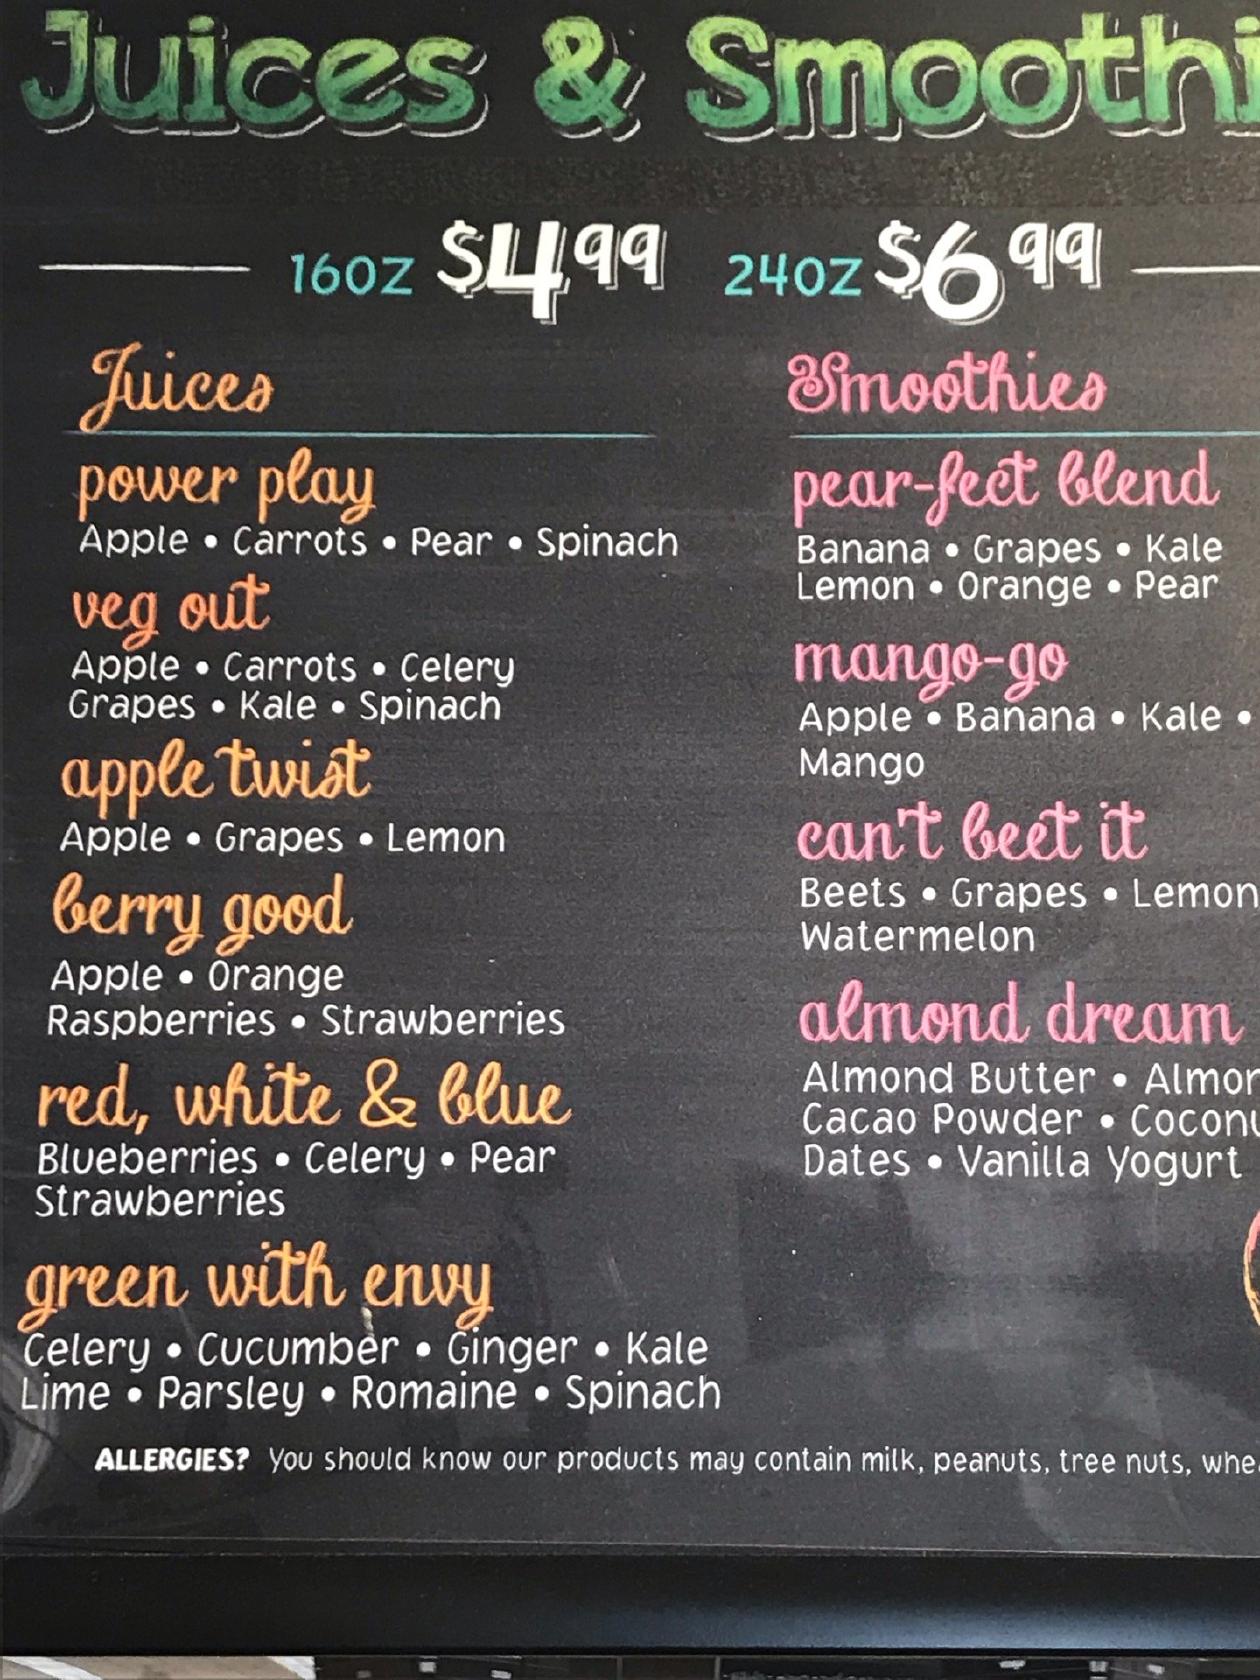 Juices & Smoothi
16OZ $4.99 24OZ $6.99
Juices
power play
Apple • Carrots • Pear • Spinach
veg out
Apple • Carrots • Celery
Grapes • Kale • Spinach
apple twist
Apple • Grapes • Lemon
berry good
Apple • Orange
Raspberries • Strawberries
red, white & blue
Blueberries • Celery • Pear
Strawberries
green with envy
Celery • Cucumber • Ginger • Kale
Lime • Parsley • Romaine • Spinach
Smoothies
pear-fect blend
Banana • Grapes • Kale
Lemon • Orange • Pear
mango-go
Apple • Banana • Kale •
Mango
can't beet it
Beets • Grapes • Lemon
Watermelon
almond dream
Almond Butter • Almon
Cacao Powder • Coconu
Dates • Vanilla Yogurt
ALLERGIES? You should know our products may contain milk, peanuts, tree nuts, whea